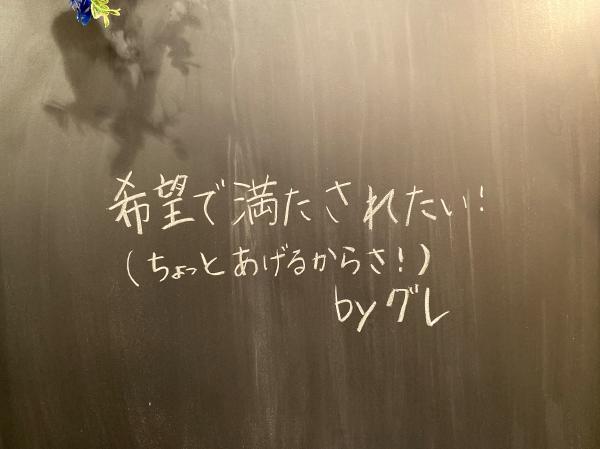 希望で満たされたい!
(ちょっとあげるからさ!)
by グレ